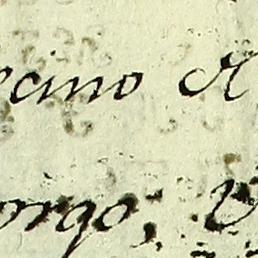 ecino d
orgo; V